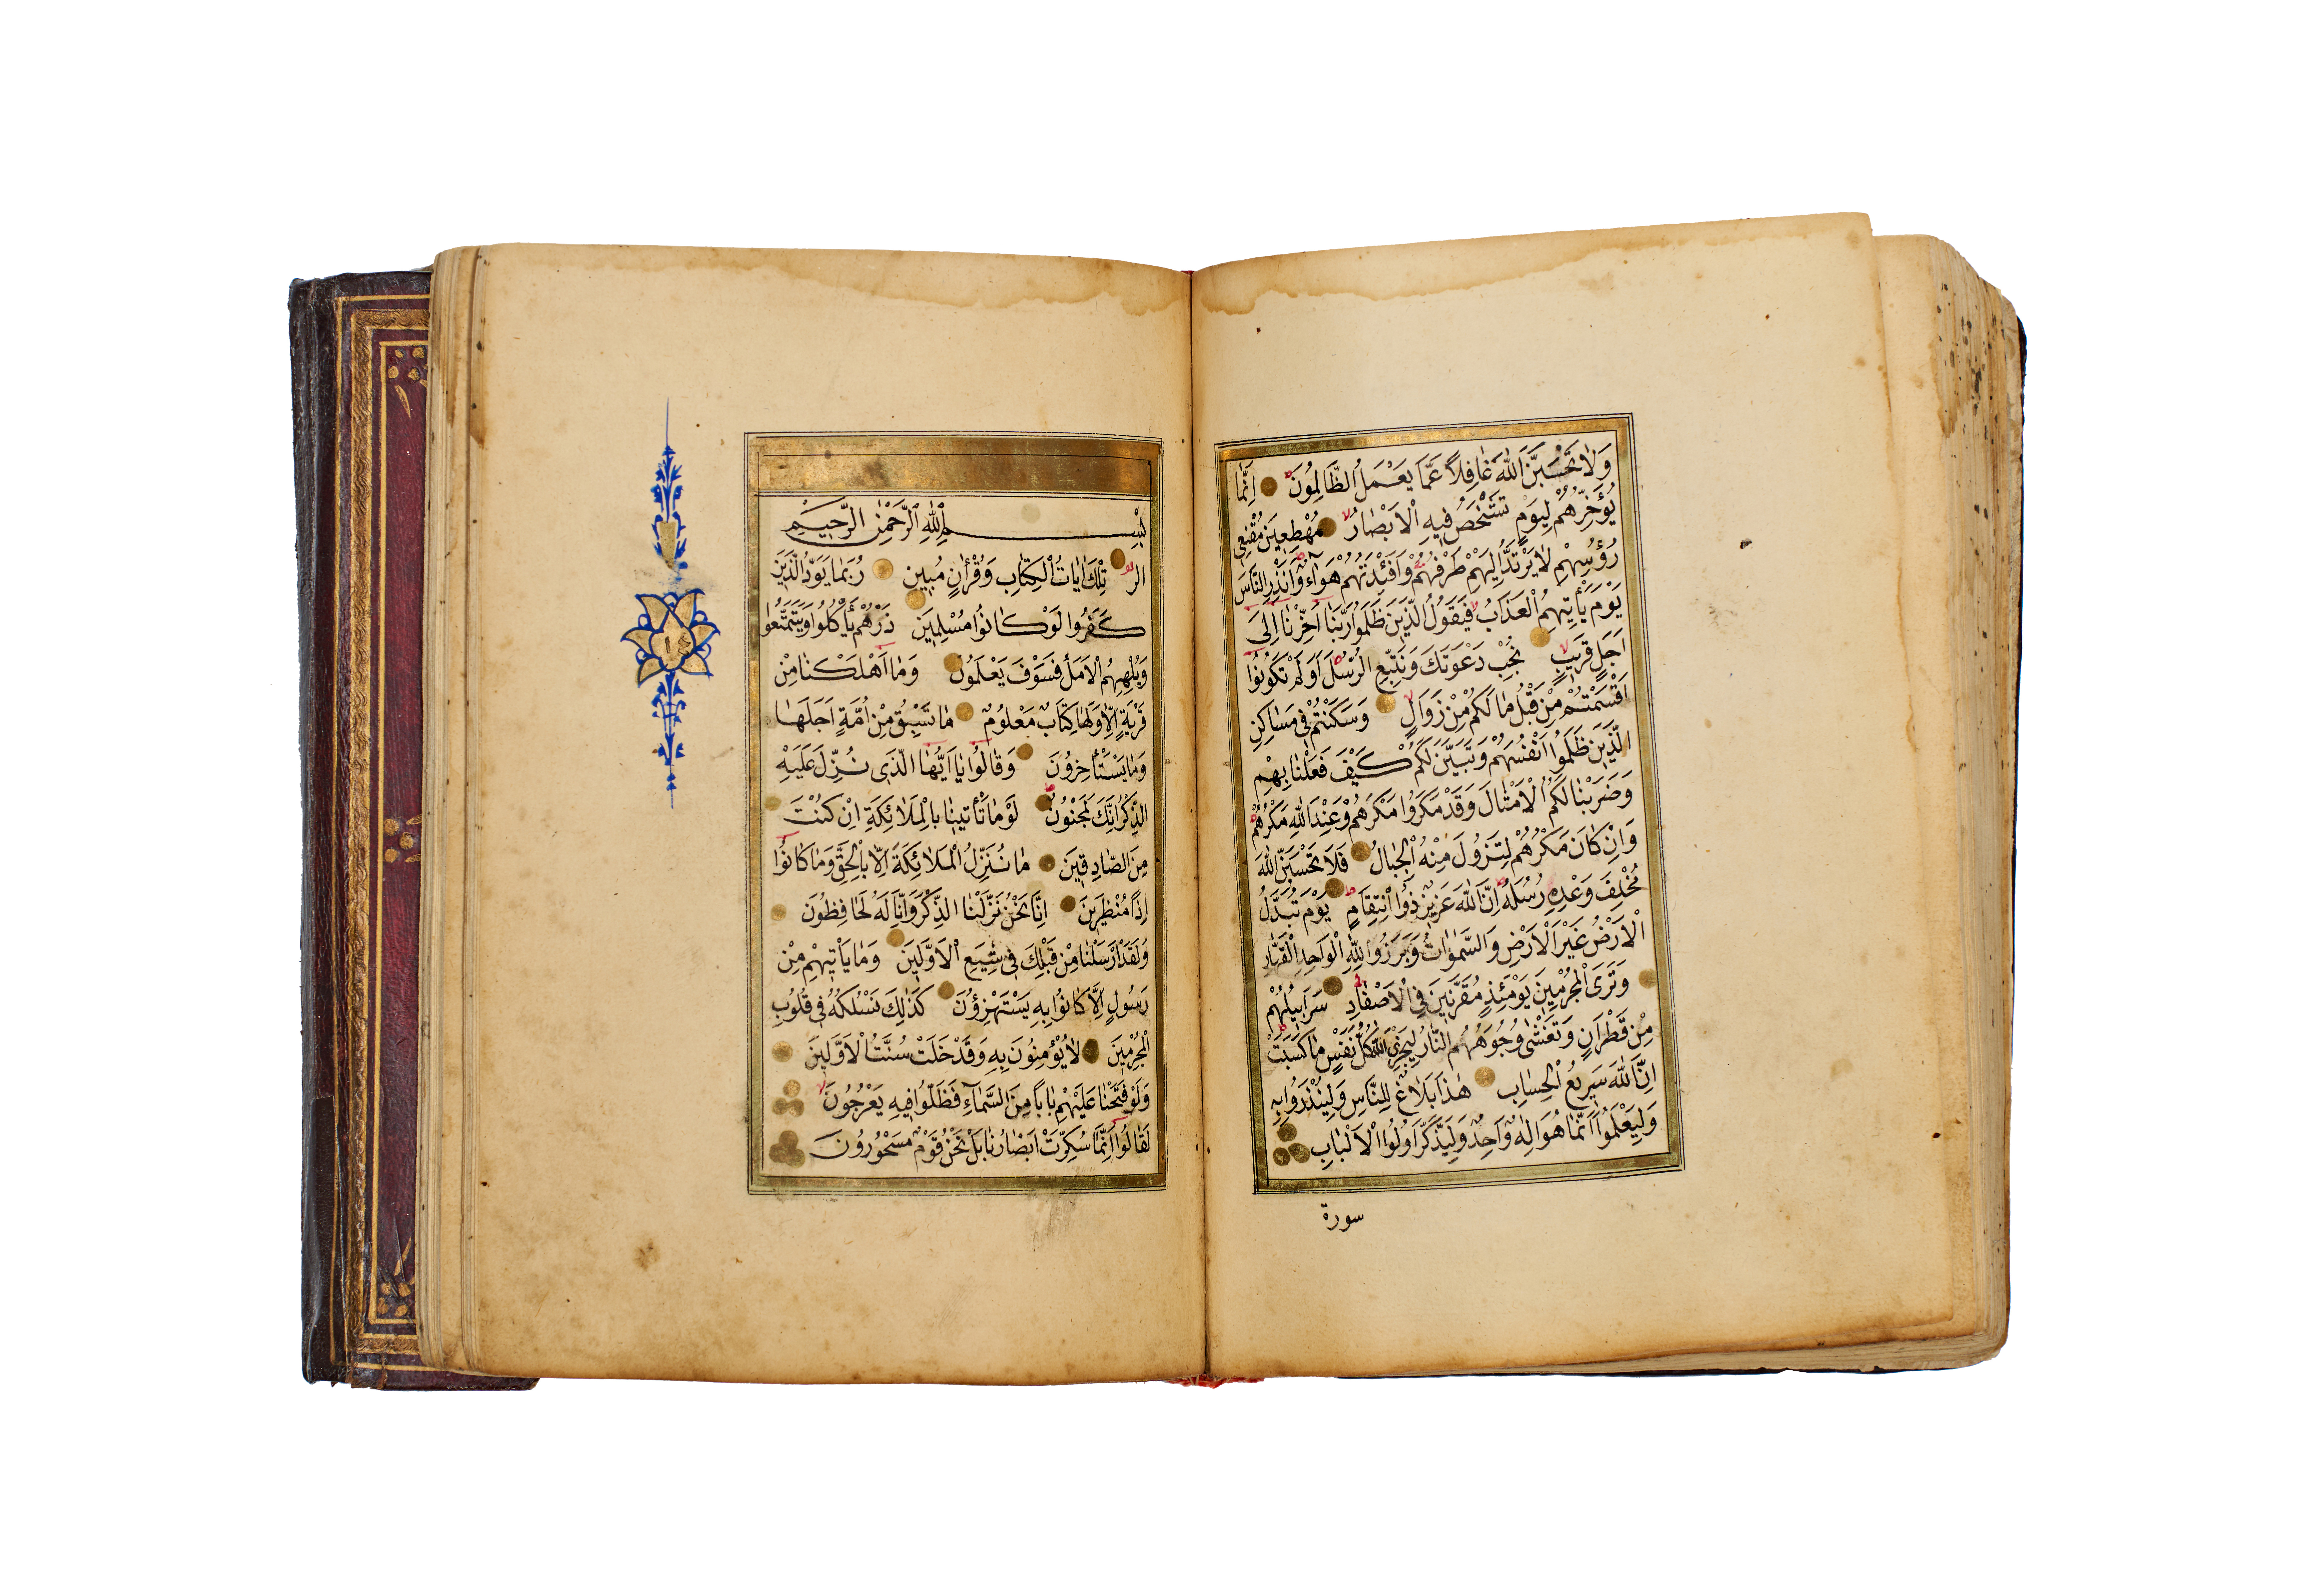 وَلَا تَحْسَبَنَّ اللّٰهَ غَافِلًا عَمَّا يَعْمَلُ الظَّالِمُونَ اِنَّمَا
يُؤَخِّرُهُمْ لِيَوْمٍ تَشْخَصُ فِيهِ الْاَبْصَارُ مُهْطِعِينَ مُقْنِعِي
رُؤُسِهِمْ لَا يَرْتَدُّ اِلَيْهِمْ طَرْفُهُمْ وَاَفْئِدَتُهُمْ هَوَاءٌ وَاَنْذِرِ النَّاسَ
يَوْمَ يَأْتِيهِمُ الْعَذَابُ فَيَقُولُ الَّذِينَ ظَلَمُوا رَبَّنَا اَخِّرْنَا اِلٰى
اَجَلٍ قَرِيبٍ نُجِبْ دَعْوَتَكَ وَنَتَّبِعِ الرُّسُلَ اَوَلَمْ تَكُونُوا
اَقْسَمْتُمْ مِنْ قَبْلُ مَا لَكُمْ مِنْ زَوَالٍ وَسَكَنْتُمْ فِي مَسَاكِنِ
الَّذِينَ ظَلَمُوا اَنْفُسَهُمْ وَتَبَيَّنَ لَكُمْ كَيْفَ فَعَلْنَا بِهِمْ
وَضَرَبْنَا لَكُمُ الْاَمْثَالَ وَقَدْ مَكَرُوا مَكْرَهُمْ وَعِنْدَ اللّٰهِ مَكْرُهُمْ
وَاِنْ كَانَ مَكْرُهُمْ لِتَزُولَ مِنْهُ الْجِبَالُ فَلَا تَحْسَبَنَّ اللّٰهَ
مُخْلِفَ وَعْدِهِ رُسُلَهُ اِنَّ اللّٰهَ عَزِيزٌ ذُو انْتِقَامٍ يَوْمَ تُبَدَّلُ
الْاَرْضُ غَيْرَ الْاَرْضِ وَالسَّمٰوَاتُ وَبَرَزُوا لِلّٰهِ الْوَاحِدِ الْقَهَّارِ
وَتَرَى الْمُجْرِمِينَ يَوْمَئِذٍ مُقَرَّنِينَ فِي الْاَصْفَادِ سَرَابِيلُهُمْ
مِنْ قَطِرَانٍ وَتَغْشٰى وُجُوهَهُمُ النَّارُ لِيَجْزِيَ اللّٰهُ كُلَّ نَفْسٍ مَا كَسَبَتْ
اِنَّ اللّٰهَ سَرِيعُ الْحِسَابِ هٰذَا بَلَاغٌ لِلنَّاسِ وَلِيُنْذَرُوا بِهِ
وَلِيَعْلَمُوا اَنَّمَا هُوَ اِلٰهٌ وَاحِدٌ وَلِيَذَّكَّرَ اُولُوا الْاَلْبَابِ
سورة
بِسْمِ اللّٰهِ الرَّحْمٰنِ الرَّحِيمِ
الر تِلْكَ اٰيَاتُ الْكِتَابِ وَقُرْاٰنٍ مُبِينٍ رُبَمَا يَوَدُّ الَّذِينَ
كَفَرُوا لَوْ كَانُوا مُسْلِمِينَ ذَرْهُمْ يَأْكُلُوا وَيَتَمَتَّعُوا
وَيُلْهِهِمُ الْاَمَلُ فَسَوْفَ يَعْلَمُونَ وَمَا اَهْلَكْنَا مِنْ
قَرْيَةٍ اِلَّا وَلَهَا كِتَابٌ مَعْلُومٌ مَا تَسْبِقُ مِنْ اُمَّةٍ اَجَلَهَا
وَمَا يَسْتَأْخِرُونَ وَقَالُوا يَا اَيُّهَا الَّذِي نُزِّلَ عَلَيْهِ
الذِّكْرُ اِنَّكَ لَمَجْنُونٌ لَوْ مَا تَأْتِينَا بِالْمَلَائِكَةِ اِنْ كُنْتَ
مِنَ الصَّادِقِينَ مَا نُنَزِّلُ الْمَلَائِكَةَ اِلَّا بِالْحَقِّ وَمَا كَانُوا
اِذًا مُنْظَرِينَ اِنَّا نَحْنُ نَزَّلْنَا الذِّكْرَ وَاِنَّا لَهُ لَحَافِظُونَ
وَلَقَدْ اَرْسَلْنَا مِنْ قَبْلِكَ فِي شِيَعِ الْاَوَّلِينَ وَمَا يَأْتِيهِمْ مِنْ
رَسُولٍ اِلَّا كَانُوا بِهِ يَسْتَهْزِؤُنَ كَذٰلِكَ نَسْلُكُهُ فِي قُلُوبِ
الْمُجْرِمِينَ لَا يُؤْمِنُونَ بِهِ وَقَدْ خَلَتْ سُنَّتُ الْاَوَّلِينَ
وَلَوْ فَتَحْنَا عَلَيْهِمْ بَابًا مِنَ السَّمَاءِ فَظَلُّوا فِيهِ يَعْرُجُونَ
لَقَالُوا اِنَّمَا سُكِّرَتْ اَبْصَارُنَا بَلْ نَحْنُ قَوْمٌ مَسْحُورُونَ